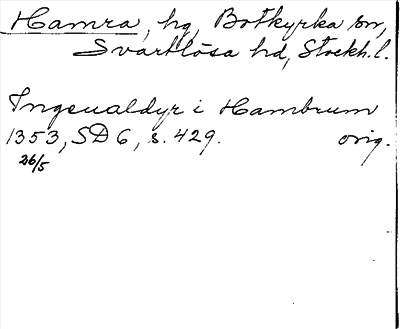 Hamra, hg, Botkyrka sn,
Svartlösa hd, Stockh. l.
Ingeualdyr i Hambrum
1353, SD 6, s. 429. orig.
26/5